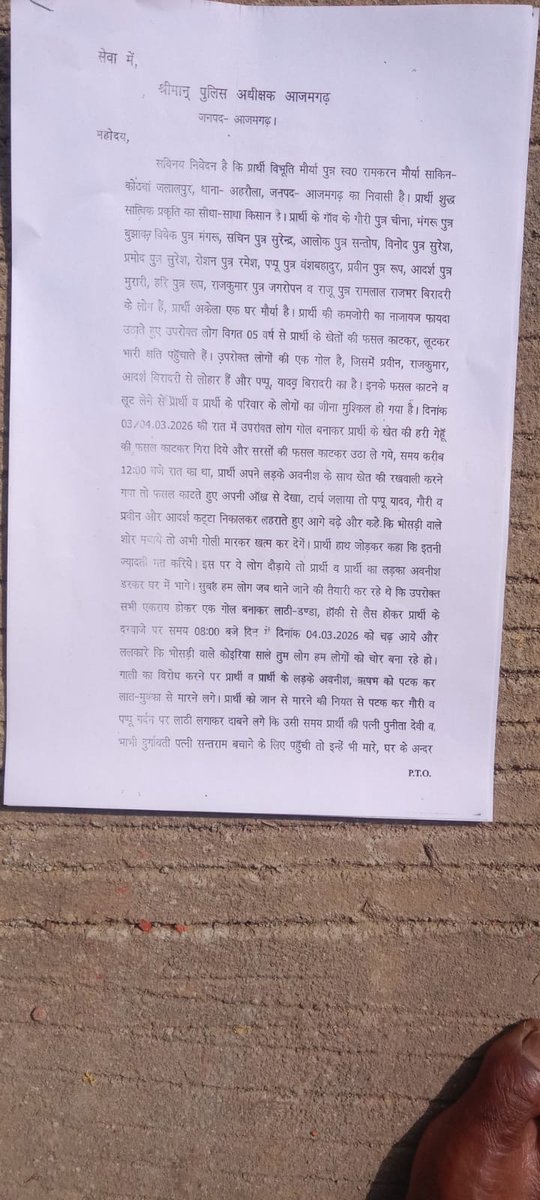 सेवा में,
श्रीमान् पुलिस अधीक्षक आजमगढ़
जनपद- आजमगढ़।
महोदय,
सविनय निवेदन है कि प्रार्थी विभूति मौर्या पुत्र स्व0 रामकरन मौर्या साकिन-
कोठवां जलालपुर, थाना- अहरौला, जनपद- आजमगढ़ का निवासी है। प्रार्थी शुद्ध
सात्विक प्रकृति का सीधा-साधा किसान है। प्रार्थी के गाँव के गौरी पुत्र चीना, मंगरू पुत्र
बुझाक विवेक पुत्र मंगरू, सचिन पुत्र सुरेन्द्र, आलोक पुत्र सन्तोष, विनोद पुत्र सुरेश,
प्रमोद पुत्र सुरेश, रोशन पुत्र रमेश, पप्पू पुत्र वंशबहादुर, प्रवीन पुत्र रूप, आदर्श पुत्र
मुरारी, हरि पुत्र रूप, राजकुमार पुत्र जगरोपन व राजू पुत्र रामलाल राजभर बिरादरी
के लोग हैं, प्रार्थी अकेला एक घर मौर्या है। प्रार्थी की कमजोरी का नाजायज फायदा
उठाते हुए उपरोक्त लोग विगत 05 वर्ष से प्रार्थी के खेतों की फसल काटकर, लूटकर
भारी क्षति पहुँचाते हैं। उपरोक्त लोगों की एक गोल है, जिसमें प्रवीन, राजकुमार,
आदर्श बिरादरी से लोहार हैं और पप्पू, यादव बिरादरी का है। इनके फसल काटने व
लूट लेने से प्रार्थी व प्रार्थी के परिवार के लोगों का जीना मुश्किल हो गया है। दिनांक
03/04.03.2026 की रात में उपरोक्त लोग गोल बनाकर प्रार्थी के खेत की हरी गेहूँ
की फसल काटकर गिरा दिये और सरसों की फसल काटकर उठा ले गये, समय करीब
12:00 बजे रात का था, प्रार्थी अपने लड़के अवनीश के साथ खेत की रखवाली करने
गया तो फसल काटते हुए अपनी आँख से देखा, टार्च जलाया तो पप्पू यादव, गौरी व
प्रवीन और आदर्श कट्टा निकालकर लहराते हुए आगे बढ़े और कहे कि भोसड़ी वाले
शोर मचाये तो अभी गोली मारकर खत्म कर देगें। प्रार्थी हाथ जोड़कर कहा कि इतनी
ज्यादती मत करिये। इस पर वे लोग दौड़ाये तो प्रार्थी व प्रार्थी का लड़का अवनीश
डरकर घर में भागे। सुबह हम लोग जब थाने जाने की तैयारी कर रहे थे कि उपरोक्त
सभी एकराय होकर एक गोल बनाकर लाठी-डण्डा, हॉकी से लैस होकर प्रार्थी के
दरवाजे पर समय 08:00 बजे दिन में दिनांक 04.03.2026 को चढ़ आये और
ललकारे कि भोसड़ी वाले कोइरिया साले तुम लोग हम लोगों को चोर बना रहे हो।
गाली का विरोध करने पर प्रार्थी व प्रार्थी के लड़के अवनीश, ऋषभ को पटक कर
लात-मुक्का से मारने लगे। प्रार्थी को जान से मारने की नियत से पटक कर गौरी व
पप्पू गर्दन पर लाठी लगाकर दाबने लगे कि उसी समय प्रार्थी की पत्नी पुनीता देवी व
भाभी दुर्गावती पत्नी सन्तराम बचाने के लिए पहुँची तो इन्हें भी मारे, घर के अन्दर
P.T.O.